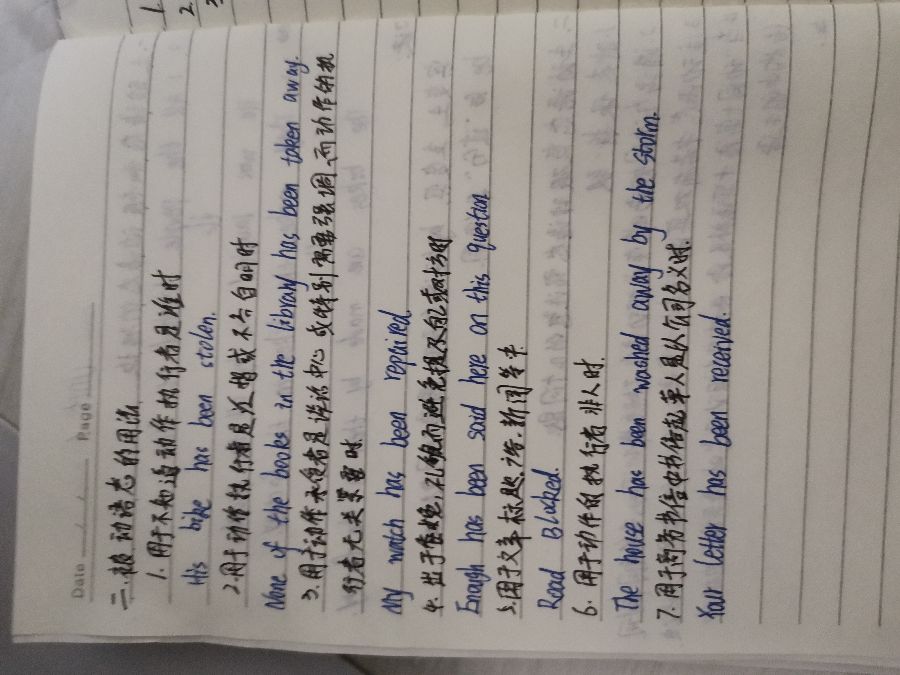 1.
2.
Date / / Page
二.被动语态的用法
1. 用于不知道动作执行者是谁时
His bike has been stolen.
2.用于动作执行者是泛指或不言自明时
None of the books in the library has been taken away.
3. 用于动作承受者是谈话中心 或特别需要强调,而动作的执
行者无关紧要时
My watch has been repaired
4. 出于委婉,礼貌而避免提及自己或对方时
Enough has been said here on this question
5.用于文章标题,广告.新闻等中
Road Blocked.
6. 用于动作的执行者 非人时.
The house has been washed away by the storm.
7.用于商务书信中书信起草人是以公司名义时.
Your letter has been received.